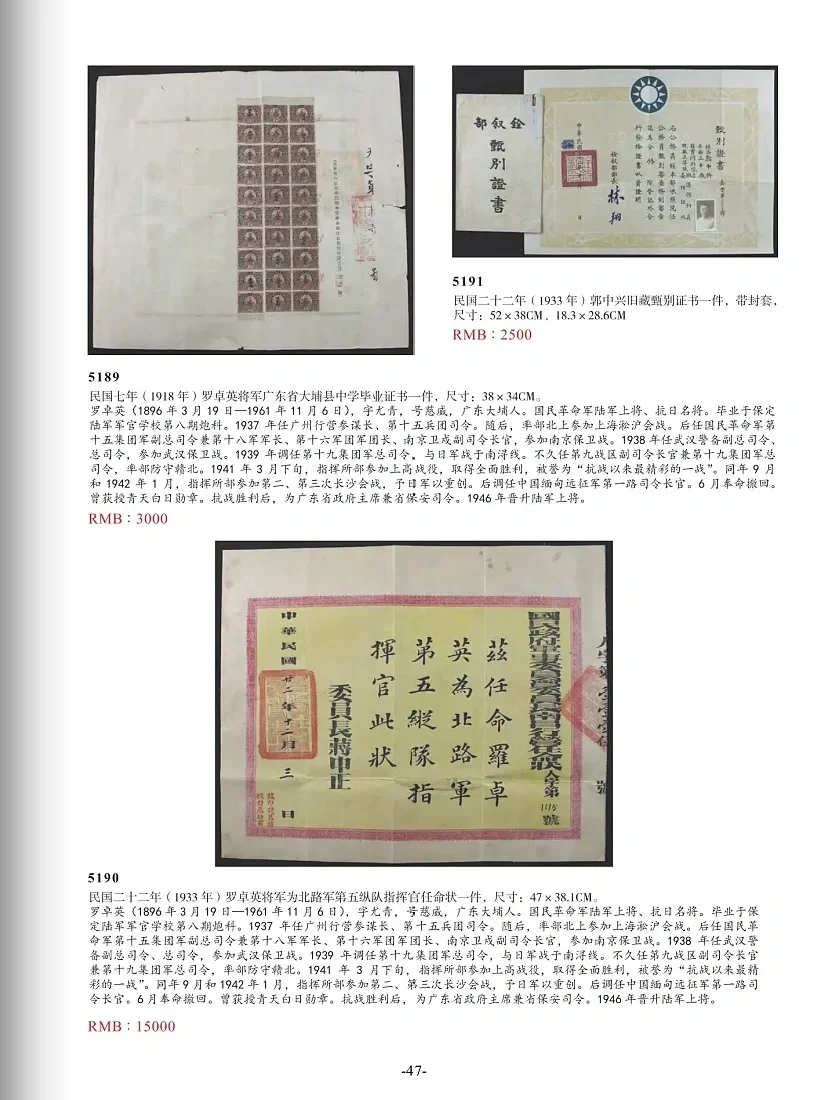 銓叙部
甄别證書
甄別證書
中華民國
銓敘部部長
林翔
5191
民国二十二年（1933 年）郭中兴旧藏甄别证书一件，带封套，
尺寸：52×38CM、18.3×28.6CM
RMB：2500
5189
民国七年（1918 年）罗卓英将军广东省大埔县中学毕业证书一件，尺寸：38×34CM。
罗卓英（1896 年 3 月 19 日—1961 年 11 月 6 日），字尤青，号慈威，广东大埔人。国民革命军陆军上将、抗日名将。毕业于保定
陆军军官学校第八期炮科。1937 年任广州行营参谋长、第十五兵团司令。随后，率部北上参加上海淞沪会战。后任国民革命军第
十五集团军副总司令兼第十八军军长、第十六军团军团长、南京卫戍副司令长官，参加南京保卫战。1938 年任武汉警备副总司令、
总司令，参加武汉保卫战。1939 年调任第十九集团军总司令，与日军战于南浔线。不久任第九战区副司令长官兼第十九集团军总
司令，率部防守赣北。1941 年 3 月下旬，指挥所部参加上高战役，取得全面胜利，被誉为“抗战以来最精彩的一战”。同年 9 月
和 1942 年 1 月，指挥所部参加第二、第三次长沙会战，予日军以重创。后调任中国缅甸远征军第一路司令长官。6 月奉命撤回。
曾获授青天白日勋章。抗战胜利后，为广东省政府主席兼省保安司令。1946 年晋升陆军上将。
RMB：3000
國民政府軍事委員會委員長南昌行營任狀 人字第1115號
茲任命羅卓
英為北路軍
第五縱隊指
揮官此狀
委員長蔣中正
中華民國廿二年十二月三日
5190
民国二十二年（1933 年）罗卓英将军为北路军第五纵队指挥官任命状一件，尺寸：47×38.1CM。
罗卓英（1896 年 3 月 19 日—1961 年 11 月 6 日），字尤青，号慈威，广东大埔人。国民革命军陆军上将、抗日名将。毕业于保
定陆军军官学校第八期炮科。1937 年任广州行营参谋长、第十五兵团司令。随后，率部北上参加上海淞沪会战。后任国民革
命军第十五集团军副总司令兼第十八军军长、第十六军团军团长、南京卫戍副司令长官，参加南京保卫战。1938 年任武汉警
备副总司令、总司令，参加武汉保卫战。1939 年调任第十九集团军总司令，与日军战于南浔线。不久任第九战区副司令长官
兼第十九集团军总司令，率部防守赣北。1941 年 3 月下旬，指挥所部参加上高战役，取得全面胜利，被誉为“抗战以来最精
彩的一战”。同年 9 月和 1942 年 1 月，指挥所部参加第二、第三次长沙会战，予日军以重创。后调任中国缅甸远征军第一路司
令长官。6 月奉命撤回。曾获授青天白日勋章。抗战胜利后，为广东省政府主席兼省保安司令。1946 年晋升陆军上将。
RMB：15000
-47-